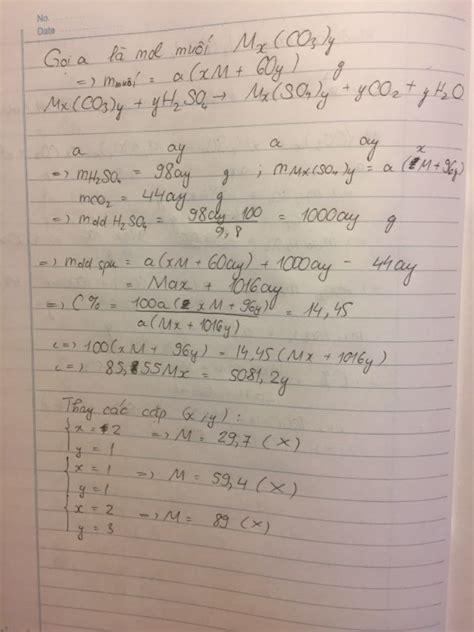 No.
Date
Gọi a là mol muối Mx(CO3)y
=) mmuối = a(xM + 60y) g
Mx(CO3)y + yH2SO4 → Mx(SO4)y + yCO2 + yH2O
a ay a ay
=) mH2SO4 = 98ay g ; mMx(SO4)y = a(xM+96y)
mCO2 = 44ay g
=) mdd H2SO4 = 98ay.100 / 9,8 = 1000ay g
=) mdd spứ = a(xM + 60ay) + 1000ay - 44ay
= Max + 1016ay
=) C% = 100a(xM + 96y) / a(Mx + 1016y) = 14,45
(=) 100(xM + 96y) = 14,45(Mx + 1016y)
(=) 85,55Mx = 5081,2y
Thay các cặp (x;y) :
{x = 2 =) M = 29,7 (X)
y = 1
{x = 1 =) M = 59,4 (X)
y = 1
{x = 2 =) M = 89 (X)
y = 3